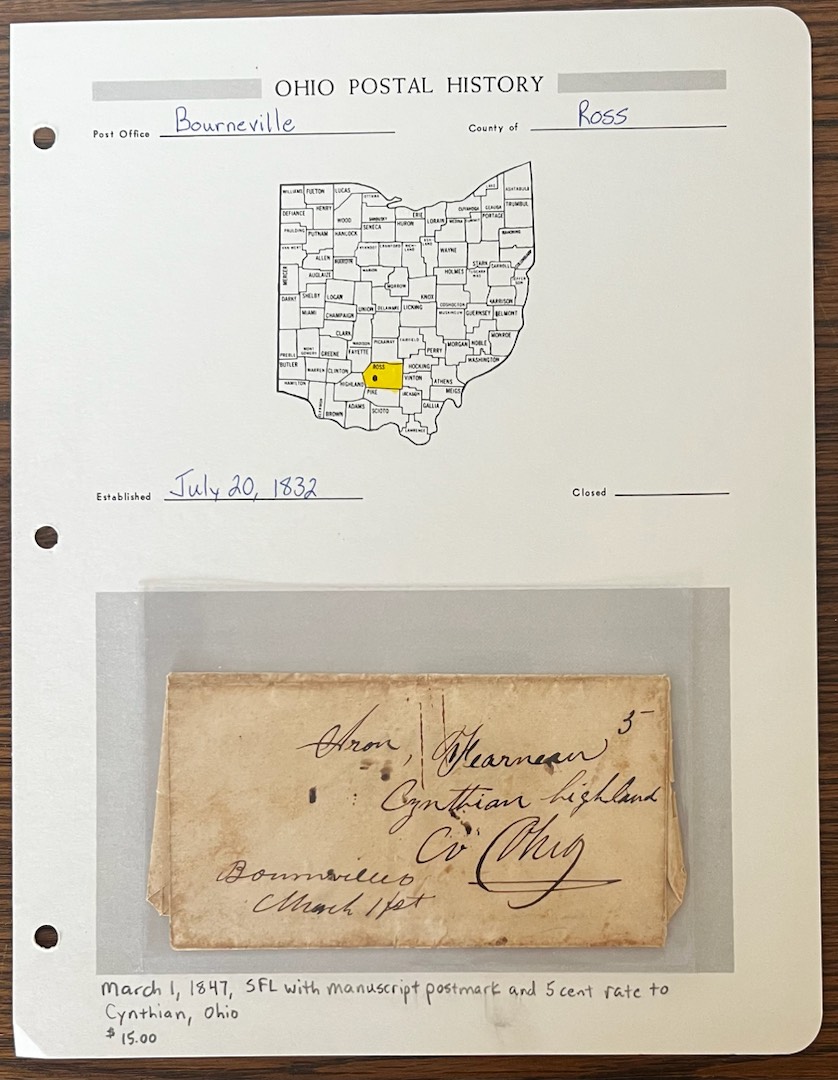 OHIO POSTAL HISTORY
Post Office Bourneville
County of Ross
WILLIAMS FULTON LUCAS OTTAWA LAKE ASHTABULA
DEFIANCE HENRY WOOD SANDUSKY ERIE LORAIN CUYAHOGA GEAUGA TRUMBUL
PAULDING PUTNAM HANCOCK SENECA HURON MEDINA SUMMIT PORTAGE MAHONING
VAN WERT ALLEN WYANDOT CRAWFORD RICHLAND ASHLAND WAYNE STARK CARROLL
MERCER AUGLAIZE HARDIN MARION MORROW HOLMES
DARKE SHELBY LOGAN UNION DELAWARE KNOX COSHOCTON HARRISON
MIAMI CHAMPAIGN LICKING MUSKINGUM GUERNSEY BELMONT
CLARK MADISON PICKAWAY FAIRFIELD PERRY MORGAN NOBLE MONROE
PREBLE MONTGOMERY GREENE FAYETTE WASHINGTON
BUTLER WARREN CLINTON ROSS HOCKING
HAMILTON HIGHLAND VINTON ATHENS
PIKE JACKSON MEIGS
BROWN ADAMS SCIOTO GALLIA
LAWRENCE
Established July 20, 1832
Closed
5
Aron,
Cynthian highland
Co Ohio
Bournville
March 1st
March 1, 1847, SFL with manuscript postmark and 5 cent rate to
Cynthian, Ohio
$15.00